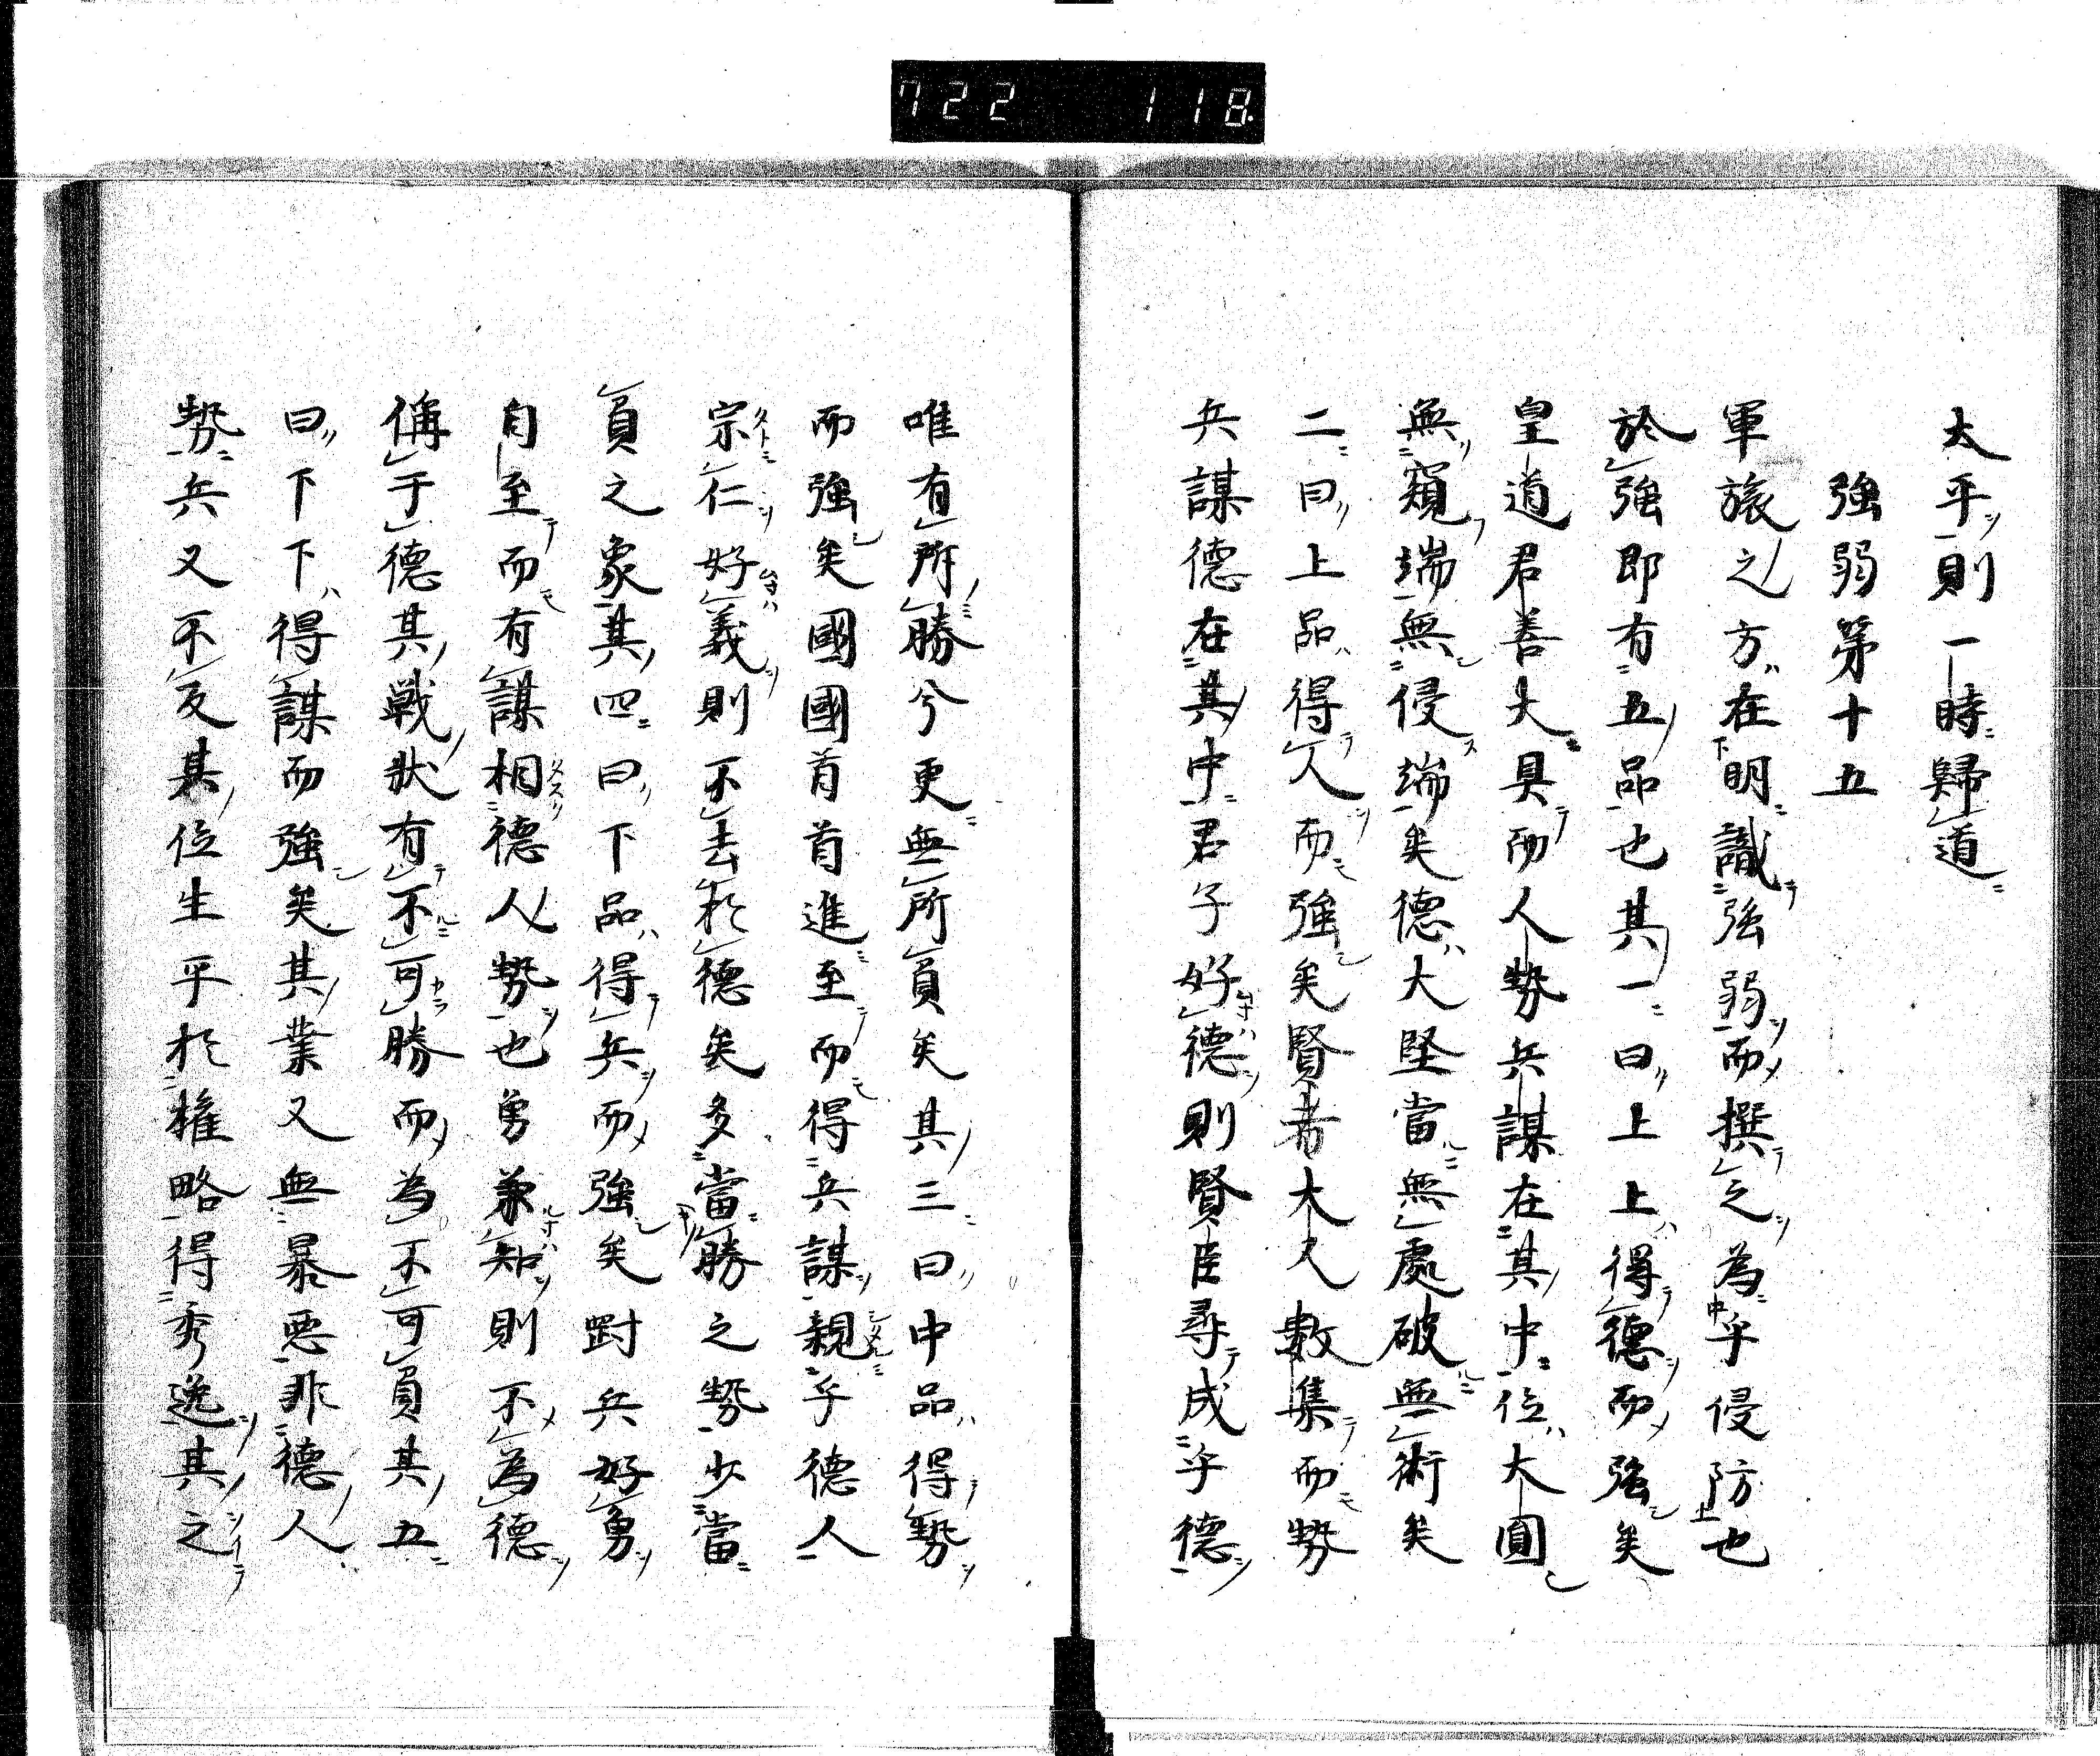 722 118
太平則一時歸道
強弱第十五
軍旅之方在明識強弱而撰之為乎侵防也
於強即有五品也其一曰上上得德而強矣
皇道君善大具而人勢兵謀在其中位大圓
無窺端無侵端矣德大堅當無處破無術矣
二曰上品得人而強矣賢者大人數集而勢
兵謀德在其中君子好德則賢臣尋成乎德
唯有所勝兮更無所負矣其三曰中品得勢
而強矣國國首首進至而得兵謀親乎德人
宗仁好義則不去於德矣多當勝之勢少當
負之象其四曰下品得兵而強矣對兵好勇
自至而有謀相德人勢也勇兼知則不為德
偁于德其戰狀有不可勝而為不可負其五
曰下下得謀而強矣其業又無暴惡非德人
勢兵又不反其位生乎於權略得秀逸其之